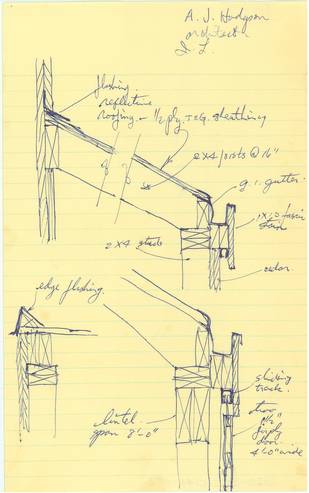 A. J. Hodgson
architect
flashing
reflective
roofing - 1/2 ply. T & G. sheathing
2x4 joists @ 16"
g. i. gutter.
1x10 fascia
2x4 studs
cedar.
edge flashing.
sliding
track.
lintel.
span 8'-0"
two
door
4'-0" wide